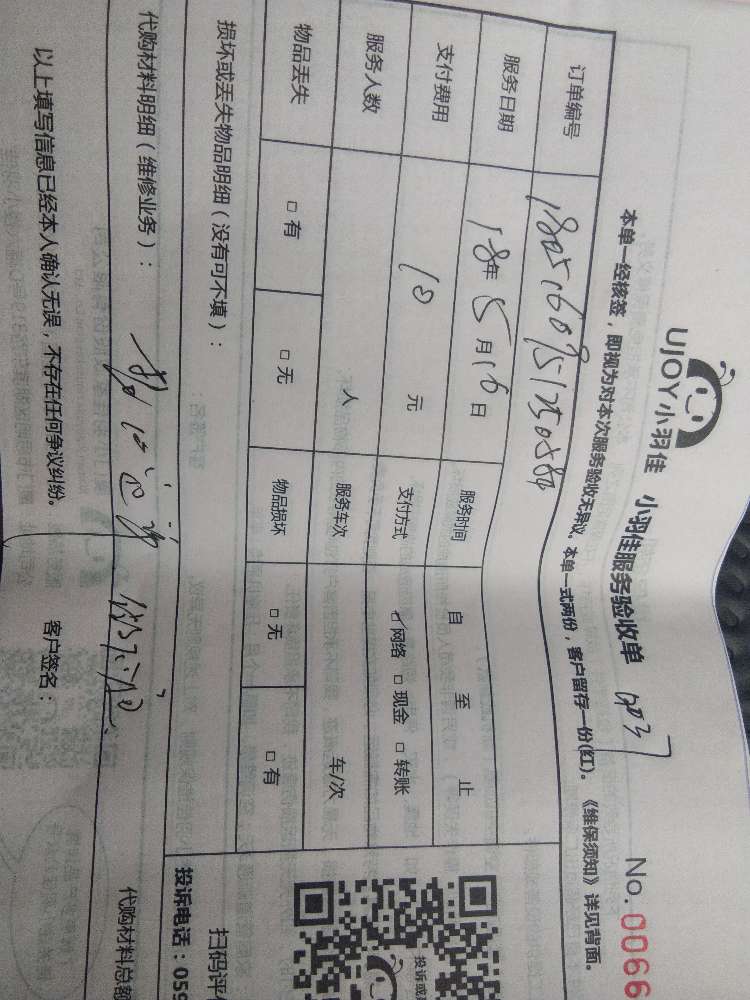 UJOY小羽佳 小羽佳服务验收单 No.0066
本单一经核签，即视为对本次服务验收无异议。本单一式两份，客户留存一份(红)。《维保须知》详见背面。
订单编号
服务日期 18年5月16日 服务时间 自 至 止
支付费用 10 元 支付方式 ☑网络 □现金 □转账
服务人数 人 服务车次 车/次
物品丢失 □有 □无 物品损坏 □无 □有
损坏或丢失物品明细（没有可不填）：
代购材料明细（维修业务）：
代购材料总额
以上填写信息已经本人确认无误，不存在任何争议纠纷。 客户签名：
投诉或
扫码评
投诉电话：059